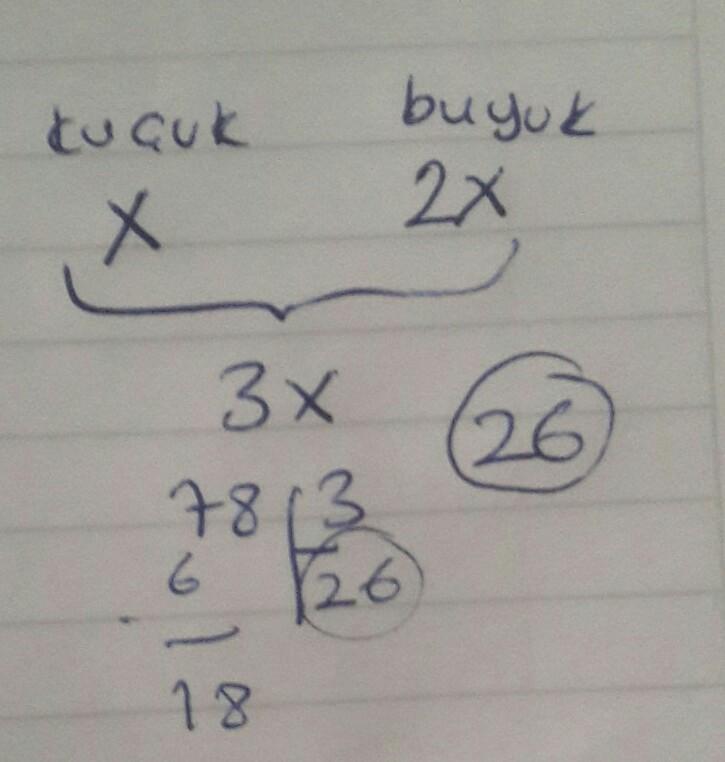 kucuk buyuk
x 2x
3x
26
78 3
6 26
-
18